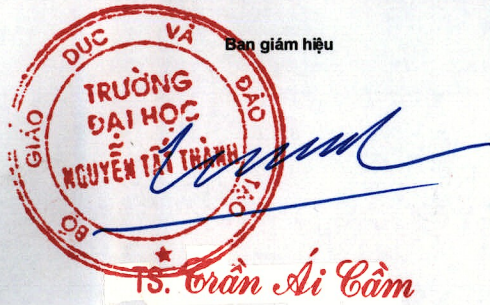 Ban giám hiệu
BỘ GIÁO DỤC VÀ ĐÀO TẠO
TRƯỜNG
ĐẠI HỌC
NGUYỄN TẤT THÀNH
TS. Trần Ái Cầm